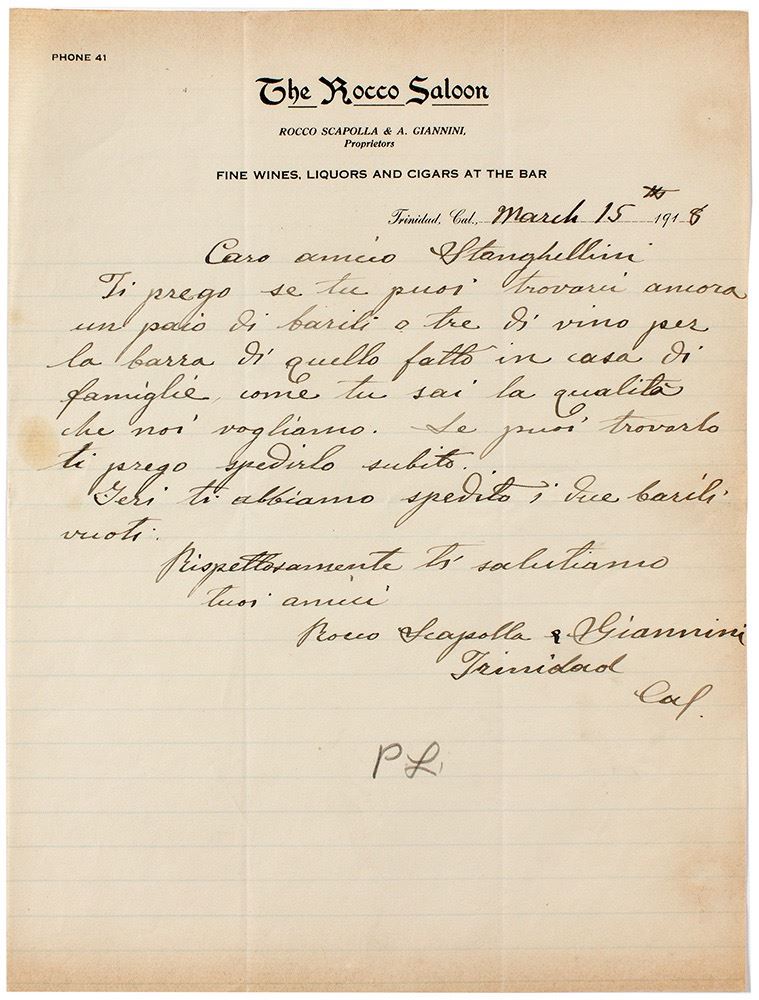 PHONE 41
The Rocco Saloon
ROCCO SCAPOLLA & A. GIANNINI,
Proprietors
FINE WINES, LIQUORS AND CIGARS AT THE BAR
Trinidad, Cal., March 15th 1918
Caro amico Stanghellini
Ti prego se tu puoi trovarci ancora
un paio di barili o tre di vino per
la barra di quello fatto in casa di
famiglie, come tu sai la qualità
che noi vogliamo. Se puoi trovarlo
ti prego spedirlo subito.
Ieri ti abbiamo spedito i due barili
vuoti.
Rispettosamente ti salutiamo
tuoi amici
Rocco Scapolla & Giannini
Trinidad
Cal.
P L